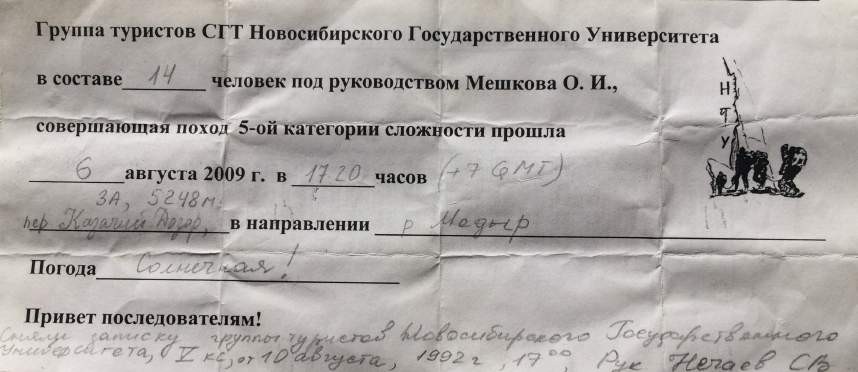 Группа туристов СГТ Новосибирского Государственного Университета
в составе 14 человек под руководством Мешкова О. И.,
НГУ
совершающая поход 5-ой категории сложности прошла
6 августа 2009 г. в 17 20 часов (+7 GMT)
3А, 5248 м.
пер Казачий Дозор, в направлении р Мадыр
Погода Солнечная!
Привет последователям!
Сняли записку группы туристов Новосибирского Государственного
Университета, V кс, от 10 августа, 1992 г, 17⁰⁰, Рук Нечаев СВ